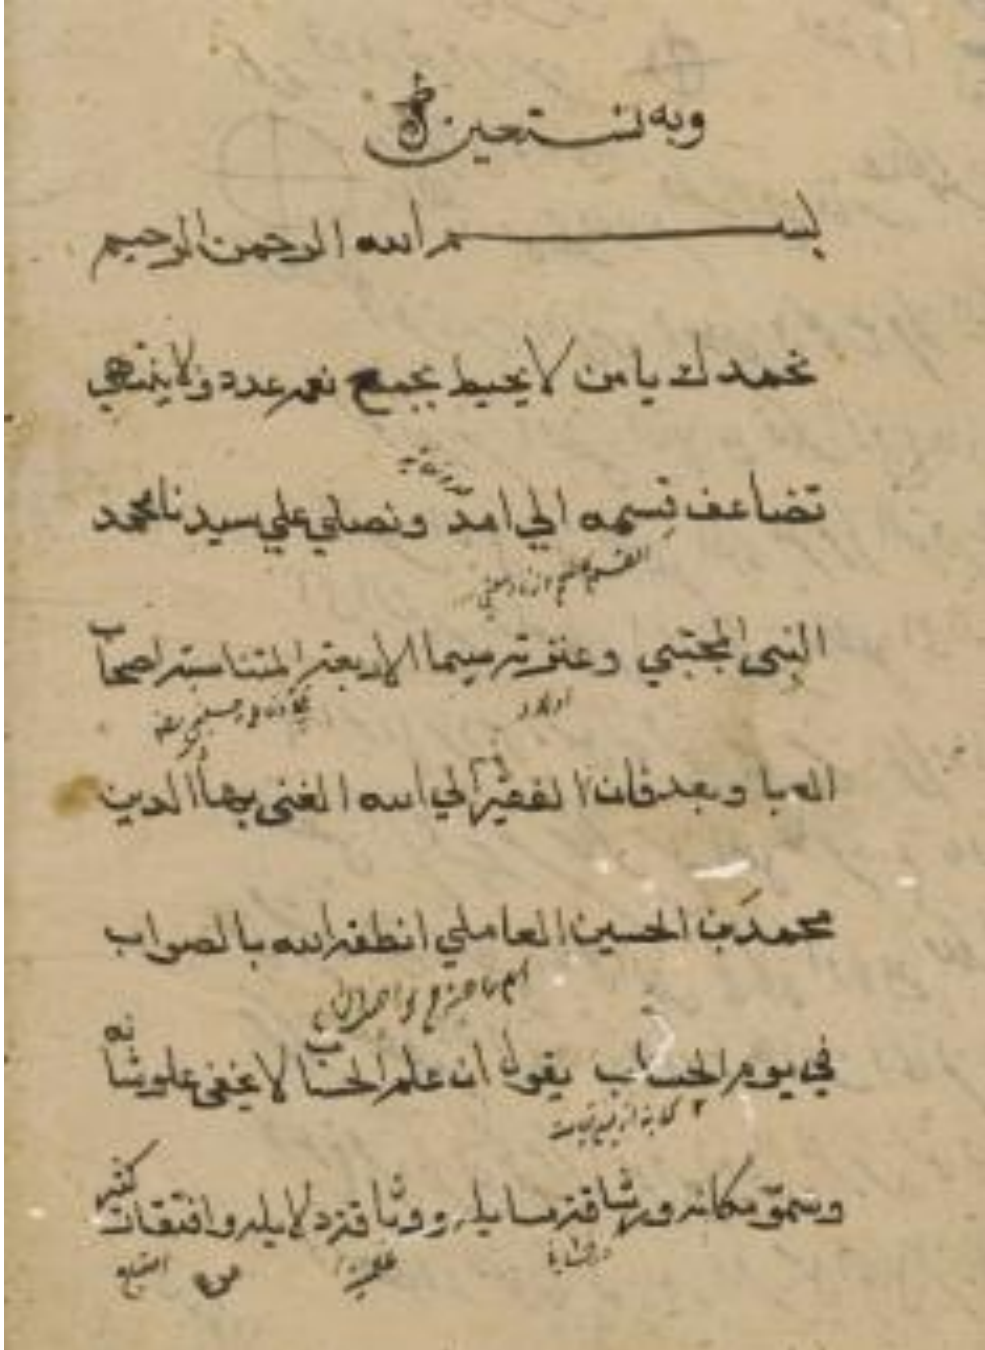 وبه نستعين
بسم الله الرحمن الرحيم
نحمدك يا من لا يحيط بجميع نعمه عدد ولا ينتهي
تضاعف قسمه الي امد ونصلي علي سيدنا محمد
النبي المجتبي وعترته سيما الاربعة المتناسبة اصحاب
العبا وبعد فان الفقير الي الله الغني بهاالدين
محمد بن الحسين العاملي انطقه الله بالصواب
في يوم الحساب يقول ان علم الحساب لا يخفي علو شانه
وسمو مكانه ورشاقة مسايله ووثاقة دلايله وافتقار كثير